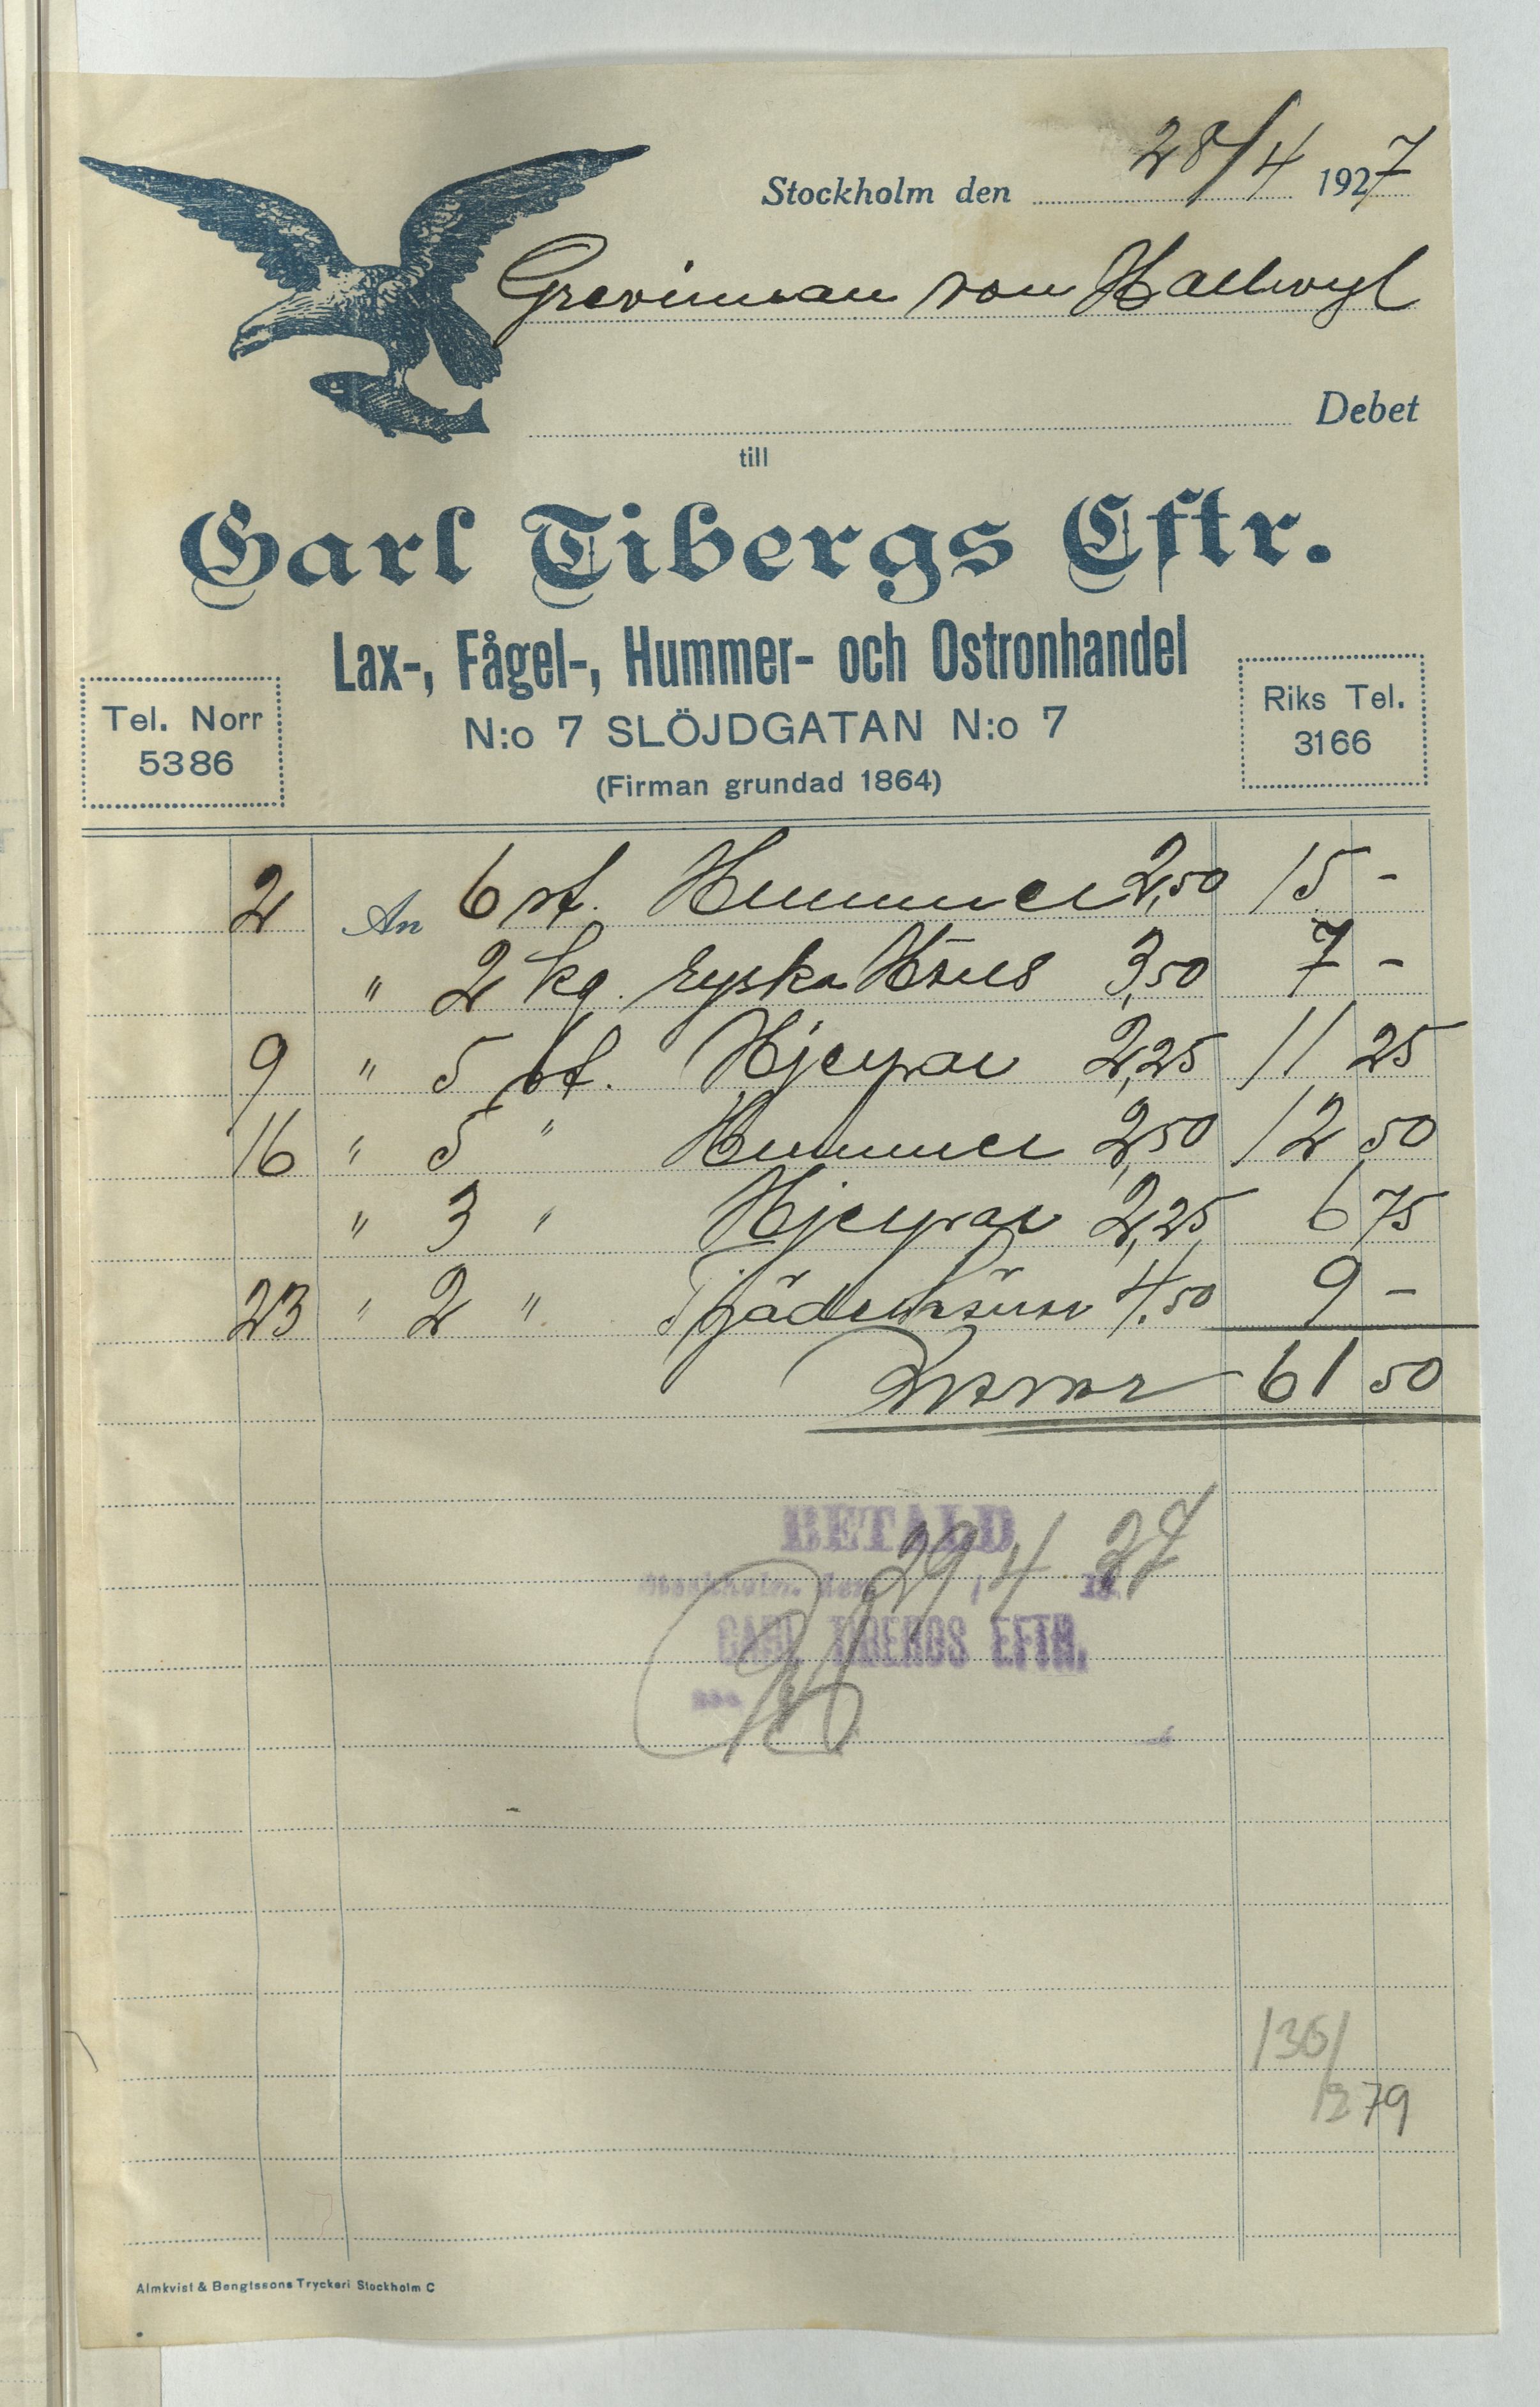 Stockholm den 28/4 1927
Grevinnan von Hallwyl
Debet
till
Carl Tibergs Eftr.
Lax-, Fågel-, Hummer- och Ostronhandel
Tel. Norr
5386
N:o 7 SLÖJDGATAN N:o 7
Riks Tel.
3166
(Firman grundad 1864)
2 An 6 st. Hummer 2,50 15 -
" 2 kg. ryska Höns 3,50 7 -
9 " 5 st. Hjerpar 2,25 11 25
16 " 5 " Hummer 2,50 12 50
" 3 " Hjerpar 2,25 6 75
23 " 2 " Tjäderhönor 4,50 9 -
Kronor 61 50
BETALD
Stockholm den 29 / 4 1927
CARL TIBERGS EFTR.
1279
Almkvist & Bengtssons Tryckeri Stockholm C